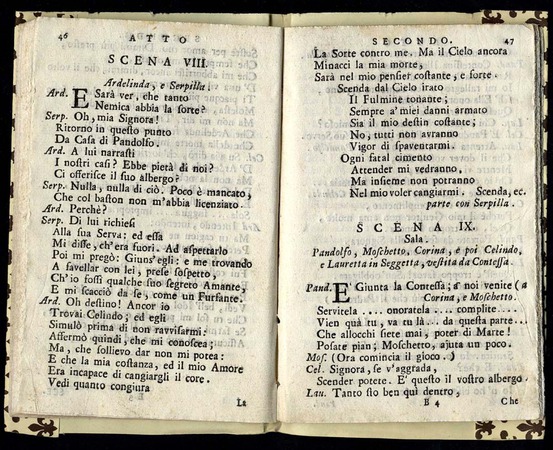 46 ATTO
SCENA VIII.
Ardelinda, e Serpilla.
Ard. E Sarà ver, che tanto
Nemica abbia la sorte?
Serp. Oh, mia Signora!
Ritorno in questo punto
Da Casa di Pandolfo.
Ard. A lui narrasti
I nostri casi? Ebbe pietà di noi?
Ci offerisce il suo albergo?
Serp. Nulla, nulla di ciò. Poco è mancato,
Che col baston non m'abbia licenziato.
Ard. Perchè?
Serp. Di lui richiesi
Alla sua Serva: ed essa
Mi disse, ch'era fuori. Ad aspettarlo
Poi mi pregò: Giuns'egli: e me trovando
A favellar con lei, prese sospetto,
Ch'io fossi qualche suo segreto Amante,
E mi scacciò da se, come un Furfante.
Ard. Oh destino! Ancor io
Trovai Celindo; ed egli
Simulò prima di non ravvisarmi:
Affermò quindi, che mi conoscea;
Ma, che sollievo dar non mi potea:
E che la mia costanza, ed il mio Amore
Era incapace di cangiargli il core.
Vedi quanto congiura
La
SECONDO. 47
La Sorte contro me. Ma il Cielo ancora
Minacci la mia morte,
Sarà nel mio pensier costante, e forte.
Scenda dal Cielo irato
Il Fulmine tonante;
Sempre a' miei danni armato
Sia il mio destin costante;
No, tutti non avranno
Vigor di spaventarmi.
Ogni fatal cimento
Attender mi vedranno,
Ma insieme non potranno
Nel mio voler cangiarmi. Scenda, ec.
parte con Serpilla.
SCENA IX.
Sala.
Pandolfo, Moschetto, Corina, e poi Celindo,
e Lauretta in Seggetta, vestita da Contessa.
Pand. E' Giunta la Contessa; a noi venite (a
Corina, e Moschetto.
Servitela .... onoratela .... complite ....
Vien quà tu, va tu là... da questa parte...
Che allocchi siete mai, poter di Marte!
Posate pian; Moschetto, ajuta un poco.
Mos. (Ora comincia il gioco.)
Cel. Signora, se v'aggrada,
Scender potete. E' questo il vostro albergo.
Lau. Tanto sto ben quì dentro,
B 4 Che